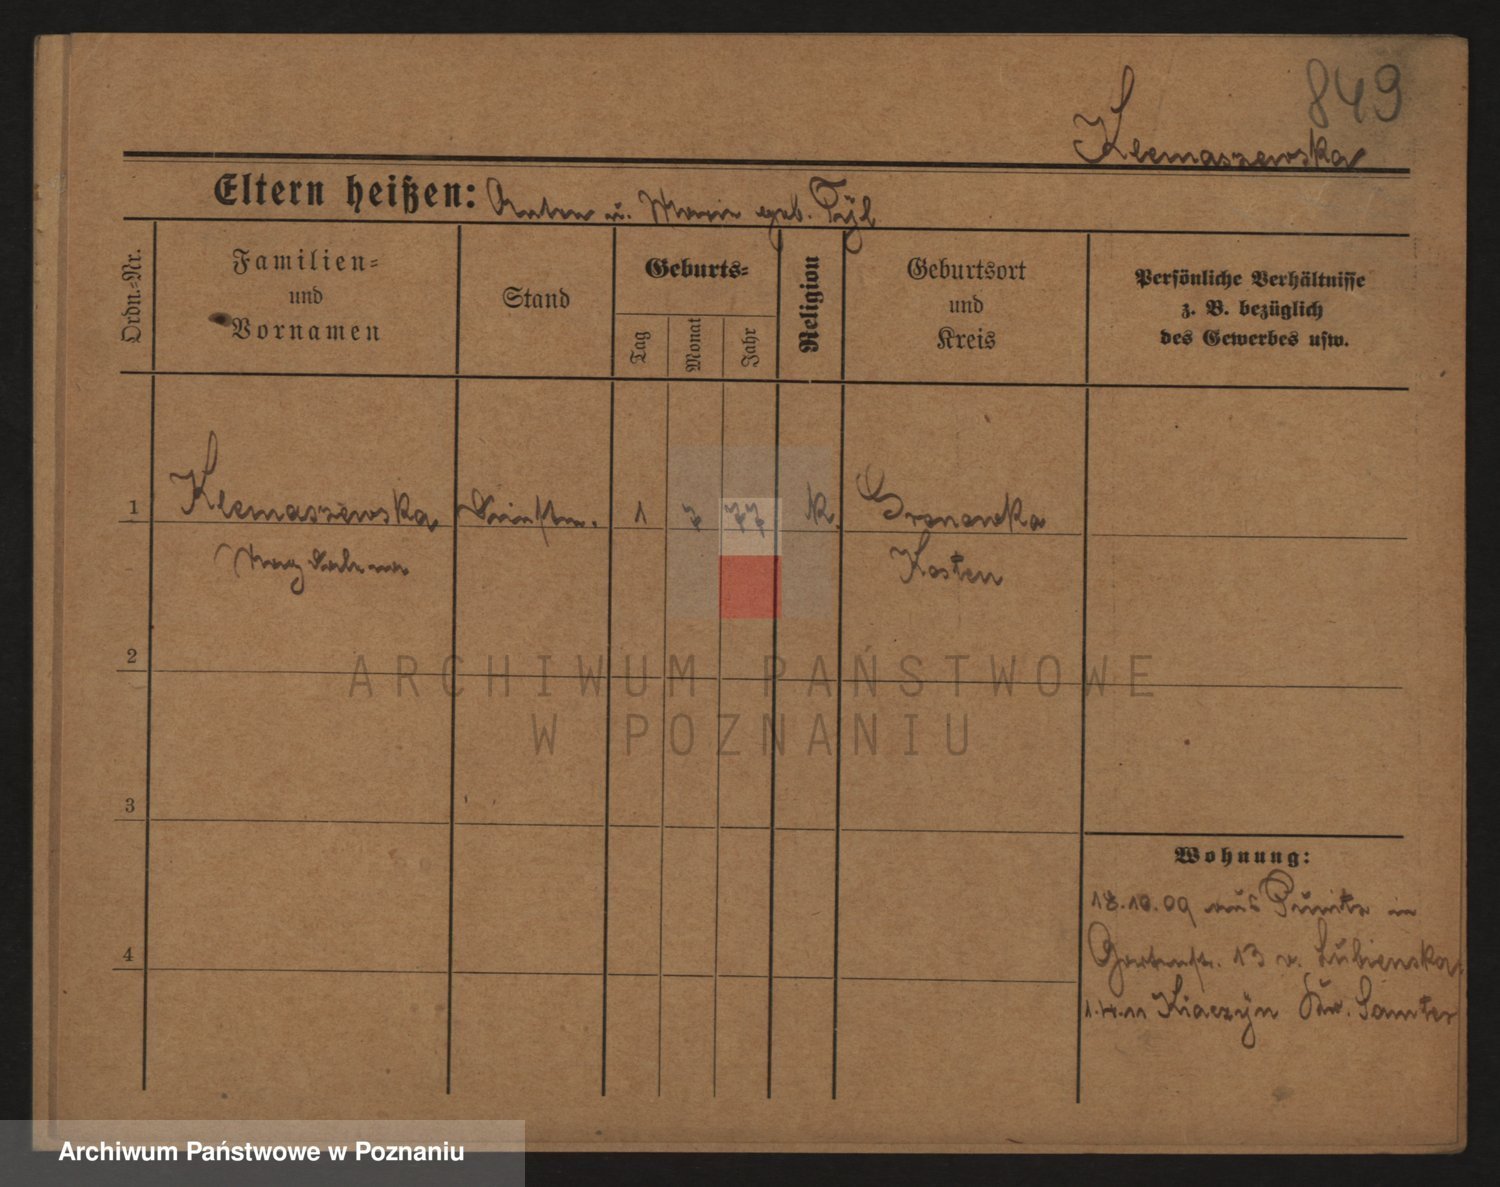 849
Klemaszewska
Eltern heißen: Anton u. Marie geb. Tyl
Ordn.-Nr.
Familien-
und
Vornamen
Stand
Geburts-
Tag
Monat
Jahr
Religion
Geburtsort
und
Kreis
Persönliche Verhältnisse
z. B. bezüglich
des Gewerbes usw.
1 Klemaszewska 1 7 77 k. Gronowka
Magdalena Kosten
2
3
4
Wohnung:
18.10.09 aus Punitz in
Gartenstr. 13 v. Lubienska
1.4.11 Kiaczyn Kr. Samter
ARCHIWUM PAŃSTWOWE
W POZNANIU
Archiwum Państwowe w Poznaniu